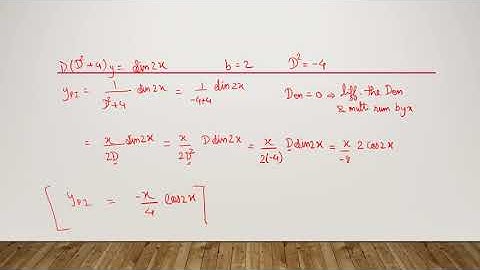 D(D²+4)y = sin2x b = 2 D² = -4
y_PI = 1/(D²+4) sin2x = 1/(-4+4) sin2x Den = 0 ⇒ diff. the Den
& mult num by x
= x/2D sin2x = x/2D² D sin2x = x/2(-4) D sin2x = x/-8 2 cos2x
[ y_PI = -x/4 cos2x ]